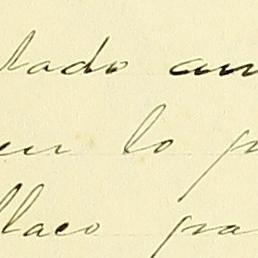 lado an
en lo p
llaco pa